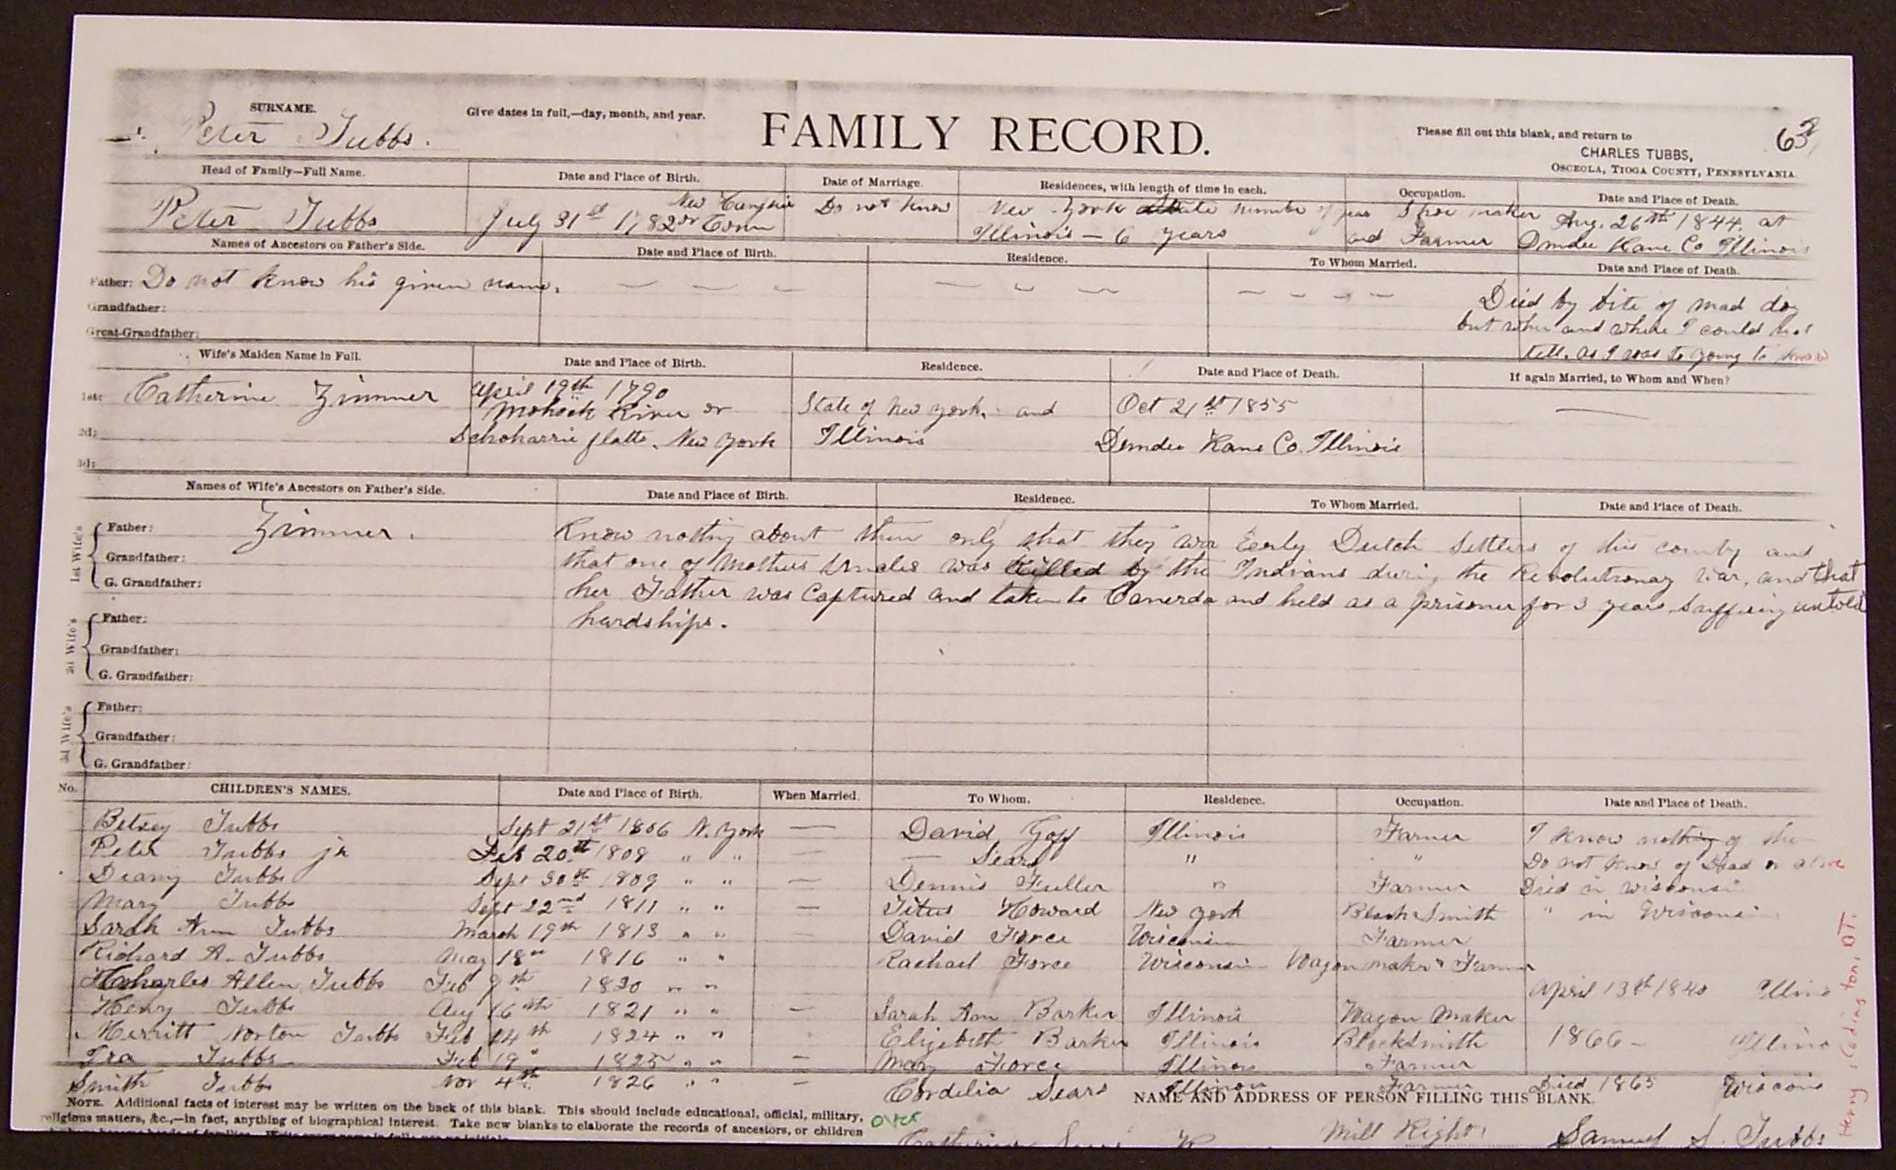 SURNAME.
Peter Tubbs.
Give dates in full,—day, month, and year.
FAMILY RECORD.
Please fill out this blank, and return to
CHARLES TUBBS,
OSCEOLA, TIOGA COUNTY, PENNSYLVANIA.
63
Head of Family—Full Name. Date and Place of Birth. Date of Marriage. Residences, with length of time in each. Occupation. Date and Place of Death.
Peter Tubbs July 31st 1782 or Conn Do not know New York State number of years Shoe maker Aug. 26th 1844 at
Illinois — 6 years and Farmer Dundee Kane Co Illinois
Names of Ancestors on Father's Side. Date and Place of Birth. Residence. To Whom Married. Date and Place of Death.
Father: Do not know his given name. — — — — — — — — — — Died by bite of mad dog
Grandfather: but when and where I could not
Great-Grandfather: tell. as I was to young to know
Wife's Maiden Name in Full. Date and Place of Birth. Residence. Date and Place of Death. If again Married, to Whom and When?
1st: Catherine Zimmer April 19th 1790 State of New York. and Oct 21st 1855 —
Mohock River or
2d: Schoharrie flatts. New York Illinois Dundee Kane Co. Illinois
3d:
Names of Wife's Ancestors on Father's Side. Date and Place of Birth. Residence. To Whom Married. Date and Place of Death.
1st Wife's
Father: Zimmer. Know nothing about them only that they wer Eerly Dutch Settlers of this county and
Grandfather: that one of Mothers Uncles was Killed by the Indians during the Revolutionay War, and that
G. Grandfather: her Father was Captured and taken to Canerda and held as a prisoner for 3 years Suffering untold
hardships.
2d Wife's
Father:
Grandfather:
G. Grandfather:
3d Wife's
Father:
Grandfather:
G. Grandfather:
No. CHILDREN'S NAMES. Date and Place of Birth. When Married. To Whom. Residence. Occupation. Date and Place of Death.
Betsey Tubbs Sept 21st 1806 N. York — David Goff Illinois Farmer I know nothing of she
Peter Tubbs jr Feb 20th 1808 " " — — Sears " " Do not know of Dead or alive
Deany Tubbs Sept 30th 1809 " " — Dennis Fuller " Farmer Died in Wisconsin
Mary Tubbs Sept 22nd 1811 " " — Titus Howard New York Black Smith " in Wisconsin
Sarah Ann Tubbs March 19th 1813 " " David Force Wisconsin Farmer
Richard A. Tubbs May 18th 1816 " " Rachael Force Wisconsin Wagon maker & Farmer
Charles Allen Tubbs Feb 9th 1820 " " April 13th 1840 Illino
Henry Tubbs Aug 16th 1821 " " — Sarah Ann Barker Illinois Wagon Maker
Merritt Norton Tubbs Feb 14th 1824 " " Elizebeth Barker Illinois Blacksmith 1866 — Illino
Ira Tubbs Feb 19" 1825 " " — Mary Force Illinois Farmer
Smith Tubbs Nov 4th 1826 " " — Cordelia Sears Illinois Farmer Died 1865 Wiscons
NOTE. Additional facts of interest may be written on the back of this blank. This should include educational, official, military,
religious matters, &c.,—in fact, anything of biographical interest. Take new blanks to elaborate the records of ancestors, or children
over
NAME AND ADDRESS OF PERSON FILLING THIS BLANK.
Mill Right Samuel S. Tubbs